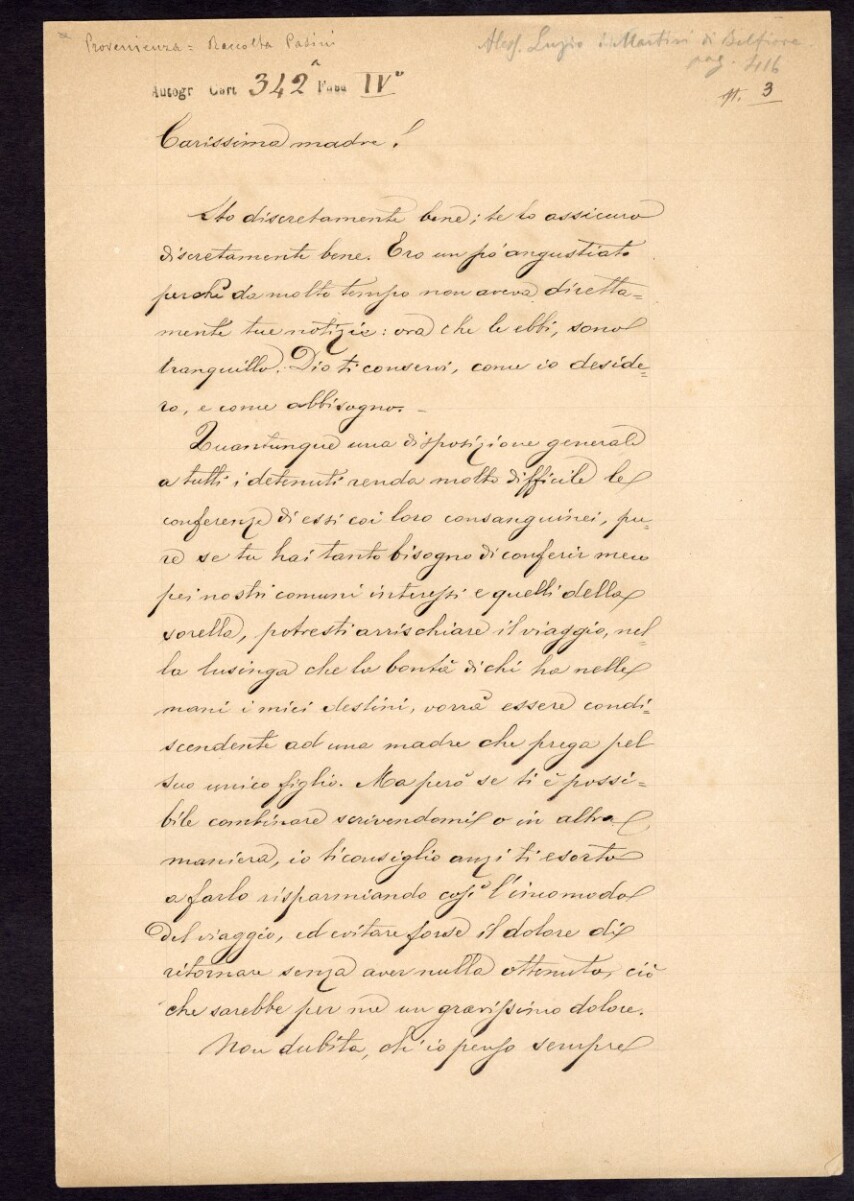 Provenienza = Raccolta Pasini
Aless. Luzio I Martiri di Belfiore
pag. 416
Autogr Cart 342ᴬ Fasc IV°
n. 3
Carissima madre!
Sto discretamente bene; te lo assicuro
discretamente bene. Ero un po' angustiato
perchè da molto tempo non aveva diretta=
mente tue notizie: ora che le ebbi, sono
tranquillo. Dio ti conservi, come io deside=
ro, e come abbisogno. –
Quantunque una disposizione generale
a tutti i detenuti renda molto difficile le
conferenze di essi coi loro consanguinei, pu=
re se tu hai tanto bisogno di conferir meco
pei nostri comuni interessi e quelli della
sorella, potresti arrischiare il viaggio, nel=
la lusinga che la bontà di chi ha nelle
mani i miei destini, vorrà essere condi=
scendente ad una madre che prega pel
suo unico figlio. Ma però se ti è possi=
bile combinare scrivendomi o in altra
maniera, io ti consiglio anzi ti esorto
a farlo risparmiando così l'incomodo
del viaggio, ed evitare forse il dolore di
ritornare senza aver nulla ottenuto, ciò
che sarebbe per me un gravissimo dolore.
Non dubita, ch'io penso sempre